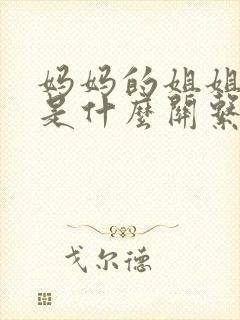 妈妈的姐姐
是什麼關繫
戈尔德